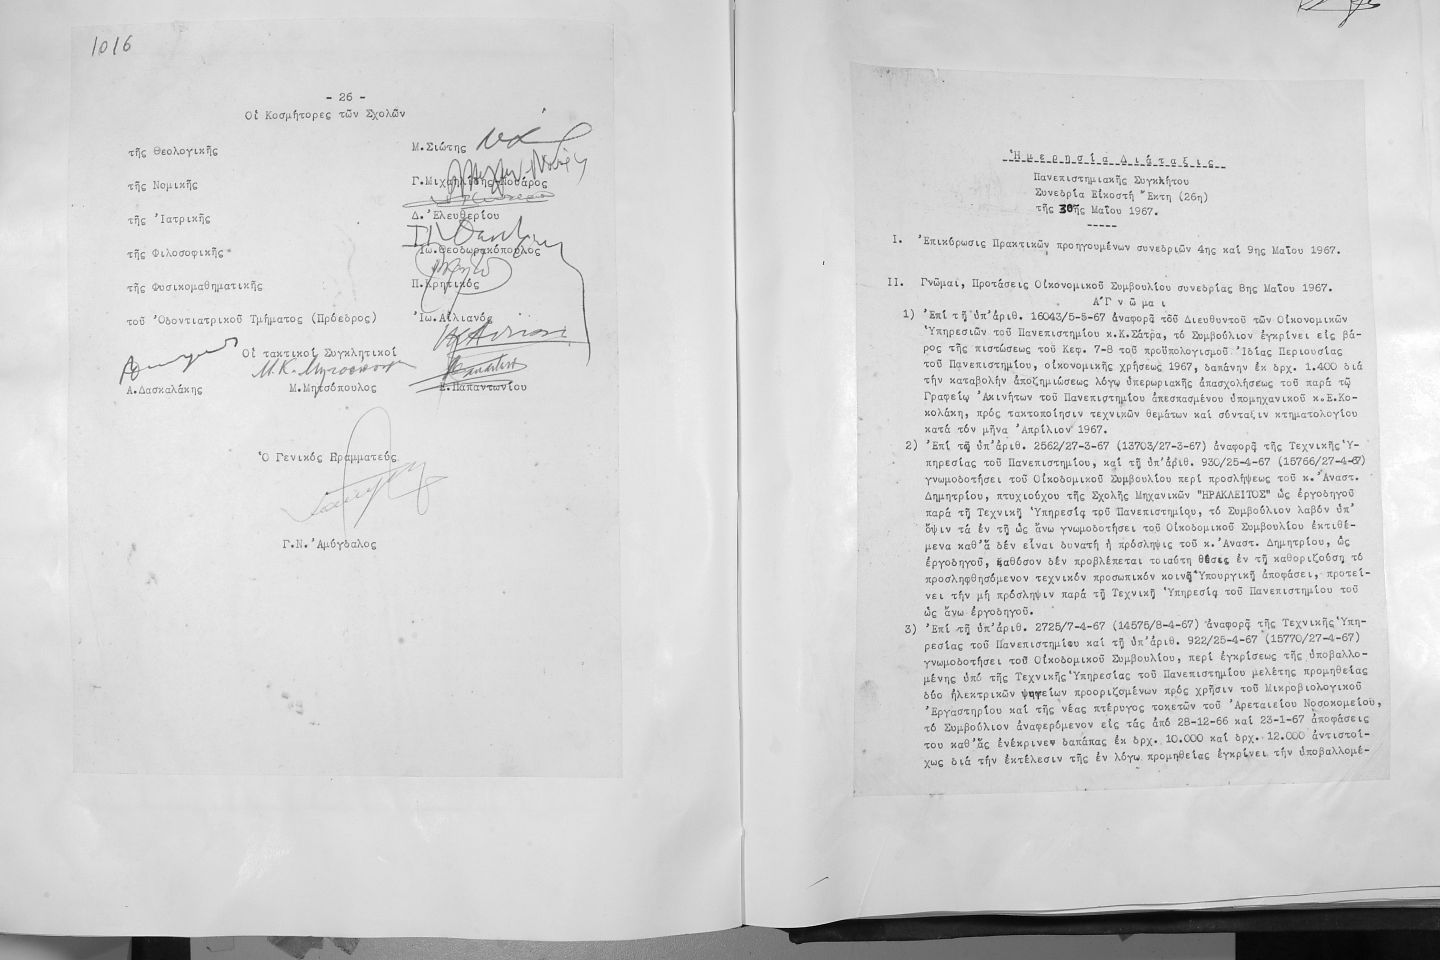 1016
- 26 -
Οἱ Κοσμήτορες τῶν Σχολῶν
τῆς Θεολογικῆς Μ.Σιώτης
τῆς Νομικῆς Γ.Μιχαηλίδης-Νουάρος
τῆς Ἰατρικῆς Δ.Ἐλευθερίου
τῆς Φιλοσοφικῆς Ἰω.Θεοδωρακόπουλος
τῆς Φυσικομαθηματικῆς Π.Κρητικός
τοῦ Ὀδοντιατρικοῦ Τμήματος (Πρόεδρος) Ἰω.Αἰλιανός
Οἱ τακτικοί Συγκλητικοί
Α.Δασκαλάκης Μ.Μητσόπουλος Ε.Παπαντωνίου
Ὁ Γενικός Γραμματεύς
Γ.Ν.Ἀμύγδαλος
Ἡμερησία Διάταξις
Πανεπιστημιακῆς Συγκλήτου
Συνεδρία Εἰκοστή Ἕκτη (26η)
τῆς 30ῆς Μαΐου 1967.
-----
I. Ἐπικύρωσις Πρακτικῶν προηγουμένων συνεδριῶν 4ης καί 9ης Μαΐου 1967.
II. Γνῶμαι, Προτάσεις Οἰκονομικοῦ Συμβουλίου συνεδρίας 8ης Μαΐου 1967.
Α' Γνῶμαι
1) Ἐπί τῇ ὑπ' ἀριθ. 16043/5-5-67 ἀναφορᾷ τοῦ Διευθυντοῦ τῶν Οἰκονομικῶν
Ὑπηρεσιῶν τοῦ Πανεπιστημίου κ.Κ.Σάτρα, τό Συμβούλιον ἐγκρίνει εἰς βά-
ρος τῆς πιστώσεως τοῦ Κεφ. 7-8 τοῦ προϋπολογισμοῦ Ἰδίας Περιουσίας
τοῦ Πανεπιστημίου, οἰκονομικῆς χρήσεως 1967, δαπάνην ἐκ δρχ. 1.400 διά
τήν καταβολήν ἀποζημιώσεως λόγῳ ὑπερωριακῆς ἀπασχολήσεως τοῦ παρά τῷ
Γραφείῳ Ἀκινήτων τοῦ Πανεπιστημίου ἀπεσπασμένου ὑπομηχανικοῦ κ.Ε.Κο-
κολάκη, πρός τακτοποίησιν τεχνικῶν θεμάτων καί σύνταξιν κτηματολογίου
κατά τόν μῆνα Ἀπρίλιον 1967.
2) Ἐπί τῇ ὑπ' ἀριθ. 2562/27-3-67 (13703/27-3-67) ἀναφορᾷ τῆς Τεχνικῆς Ὑ-
πηρεσίας τοῦ Πανεπιστημίου, καί τῇ ὑπ' ἀριθ. 930/25-4-67 (15766/27-4-67)
γνωμοδοτήσει τοῦ Οἰκοδομικοῦ Συμβουλίου περί προσλήψεως τοῦ κ. Ἀναστ.
Δημητρίου, πτυχιούχου τῆς Σχολῆς Μηχανικῶν "ΗΡΑΚΛΕΙΤΟΣ" ὡς ἐργοδηγοῦ
παρά τῇ Τεχνικῇ Ὑπηρεσίᾳ τοῦ Πανεπιστημίου, τό Συμβούλιον λαβόν ὑπ'
ὄψιν τά ἐν τῇ ὡς ἄνω γνωμοδοτήσει τοῦ Οἰκοδομικοῦ Συμβουλίου ἐκτιθέ-
μενα καθ' ἅ δέν εἶναι δυνατή ἡ πρόσληψις τοῦ κ. Ἀναστ. Δημητρίου, ὡς
ἐργοδηγοῦ, καθόσον δέν προβλέπεται τοιαύτη θέσις ἐν τῇ καθοριζούσῃ τό
προσληφθησόμενον τεχνικόν προσωπικόν κοινῇ Ὑπουργικῇ ἀποφάσει, προτεί-
νει τήν μή πρόσληψιν παρά τῇ Τεχνικῇ Ὑπηρεσίᾳ τοῦ Πανεπιστημίου τοῦ
ὡς ἄνω ἐργοδηγοῦ.
3) Ἐπί τῇ ὑπ' ἀριθ. 2725/7-4-67 (14575/8-4-67) ἀναφορᾷ τῆς Τεχνικῆς Ὑπη-
ρεσίας τοῦ Πανεπιστημίου καί τῇ ὑπ' ἀριθ. 922/25-4-67 (15770/27-4-67)
γνωμοδοτήσει τοῦ Οἰκοδομικοῦ Συμβουλίου, περί ἐγκρίσεως τῆς ὑποβαλλο-
μένης ὑπό τῆς Τεχνικῆς Ὑπηρεσίας τοῦ Πανεπιστημίου μελέτης προμηθείας
δύο ἠλεκτρικῶν ψυγείων προοριζομένων πρός χρῆσιν τοῦ Μικροβιολογικοῦ
Ἐργαστηρίου καί τῆς νέας πτέρυγος τοκετῶν τοῦ Ἀρεταιείου Νοσοκομείου,
τό Συμβούλιον ἀναφερόμενον εἰς τάς ἀπό 28-12-66 καί 23-1-67 ἀποφάσεις
του καθ' ἅς ἐνέκρινεν δαπάπας ἐκ δρχ. 10.000 καί δρχ. 12.000 ἀντιστοί-
χως διά τήν ἐκτέλεσιν τῆς ἐν λόγῳ προμηθείας ἐγκρίνει τήν ὑποβαλλομέ-